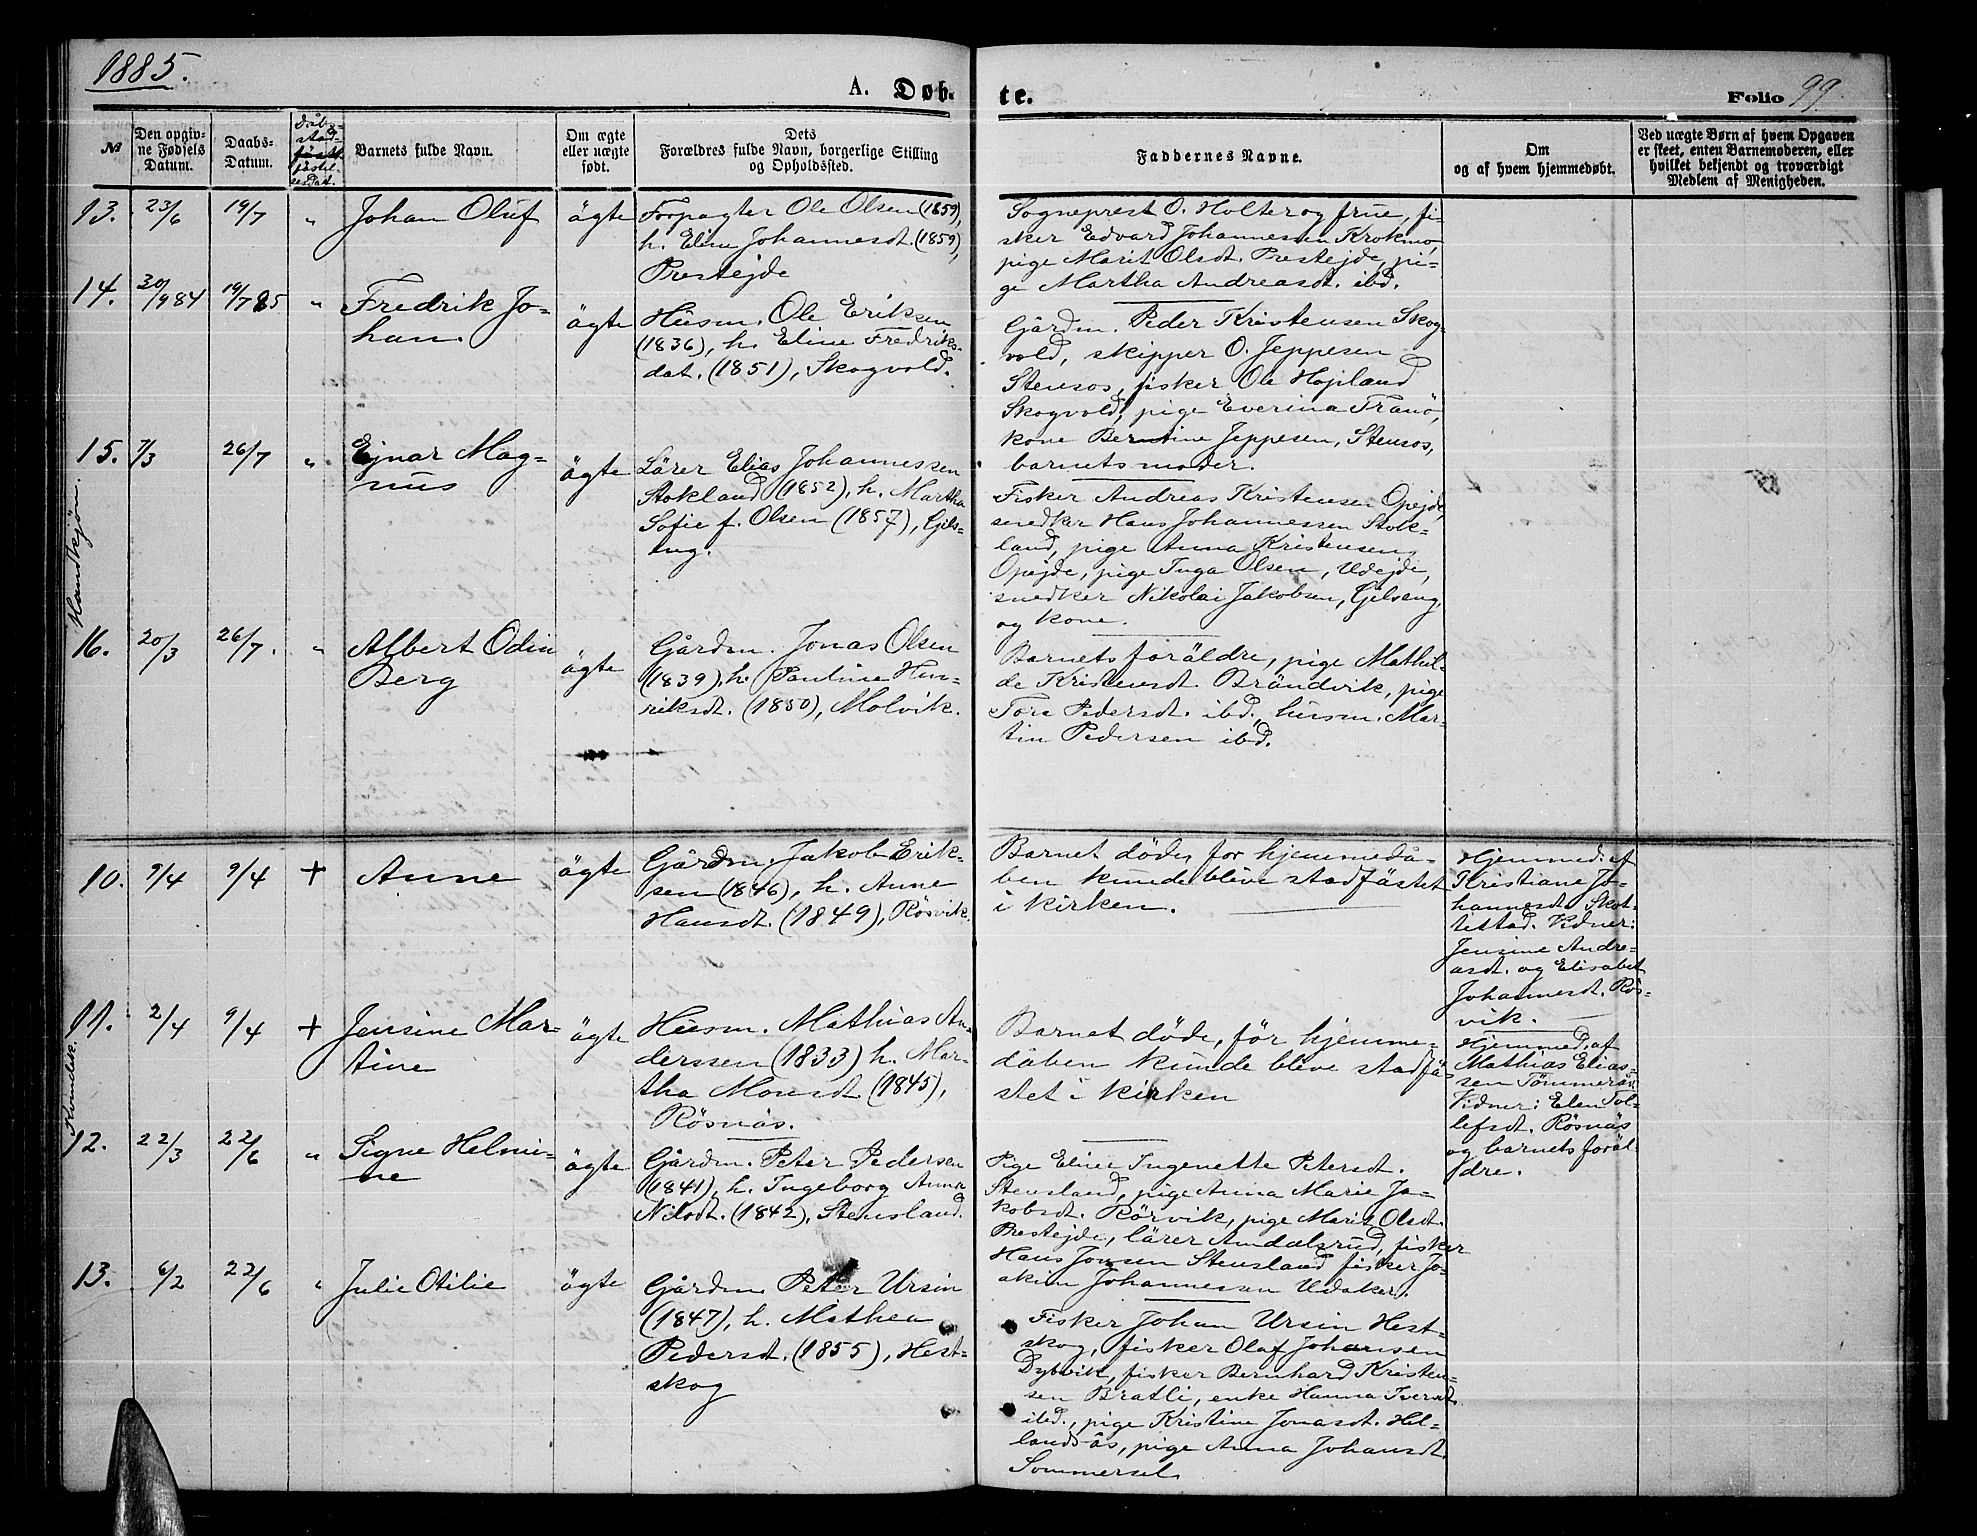 1885.
A. Døb-
te.
Folio 99.
№
Den opgiv-
ne Fødsels
Datum.
Daabs-
Datum.
Barnets fulde Navn.
Om ægte
eller uægte
født.
Dets
Forældres fulde Navn, borgerlige Stilling
og Opholdssted.
Faddernes Navne.
Om
og af hvem hjemmedøbt.
Ved uægte Børn af hvem Opgaven
er skeet, enten Barnemoderen, eller
hvilket bekjendt og troværdigt
Medlem af Menigheden.
13.
23/6
19/7
"
Johan Oluf
ägte
Forpagter Ole Olsen (1859),
h. Eline Johannesdt. (1859),
Prestejde
Sogneprest O. Holter og frue, fi-
sker Edvard Johannessen Krokmo,
pige Marit Olsdt. Prestejde, pi-
ge Martha Andreasdt. ibd.
14.
30/9 84
19/7 85
"
Fredrik Jo-
han.
ägte
Husm. Ole Eriksen
(1836), h. Eline Fredriks-
dat. (1851), Skogvold.
Gårdm. Peder Kristensen Skog-
vold, skipper O. Jeppesen
Stensos, fisker Ole Hojland
Skogvold, pige Everina Tranö,
kone Berntine Jeppesen, Stensos,
barnets moder.
Hundkjøn.
15.
7/3
26/7
"
Ejnar Mag-
nus
ägte
Lärer Elias Johannessen
Stokland (1852), h. Martha
Sofie f. Olsen (1857), Gils-
eng.
Fisker Andreas Kristensen Opejde,
snedker Hans Johannessen Stok-
land, pige Anna Kristensen
Opejde, pige Inga Olsen, Udejde,
snedker Nikolai Jakobsen, Gilseng,
og kone.
16.
20/3
26/7.
"
Albert Odin
Berg
ägte
Gårdm. Jonas Olsen
(1839), h. Pauline Hen-
riksdt. (1850), Molvik.
Barnets foräldre, pige Mathil-
de Kristensdt. Brändvik, pige
Tora Pedersdt. ibd., husm. Mar-
tin Pedersen ibd.
10.
9/4
9/4
+
Anne
ägte
Gårdm. Jakob Erik-
sen (1846), h. Anne
Hansdt. (1849), Rösvik.
Barnet döde, för hjemmedå-
ben kunde blive stadfästet
i kirken.
Hjemmed. af
Kristiane Jo-
hannesdt. Skot-
testad. Vidner:
Jensine Andre-
asdt. og Elisabet
Johannesdt. Rös-
vik.
11.
2/4
9/4
+
Jensine Mar-
tine
ägte
Husm. Mathias An-
derssen (1833) h. Mar-
tha Monsdt. (1845),
Rösnäs.
Barnet döde, för hjemme-
dåben kunde blive stadfä-
stet i kirken
Hjemmed. af
Mathias Elias-
sen Tömmerås.
Vidner: Elen Tol-
lefsdt. Rösnäs
og barnets foräl-
dre.
Kvindek.
12.
22/3
22/6
"
Signe Helmi-
ne
ägte
Gårdm. Peter Pedersen
(1841), h. Ingeborg Anna
Nilsdt. (1842), Stensland.
Pige Eline Ingenette Petersdt.
Stensland, pige Anna Marie Ja-
kobsdt. Rörvik, pige Marit Olsdt.
Prestejde, lärer Amdalsrud, fisker
Hans Jonsen Stensland, fisker Jo-
akim Johannesen Udaker.
13.
6/2
22/6
"
Julie Otilie
ägte
Gårdm. Peter Ursin
(1847), h. Mathea
Pedersdt. (1855), Hest-
skog
Fisker Johan Ursin Hest-
skog, fisker Olaf Johansen
Dybvik, fisker Bernhard Kristen-
sen Bratli, enke Hanna Iversdt.
ibd., pige Kristine Jonasdt. Hel-
landsås, pige Anna Johansdt.
Sommersel.